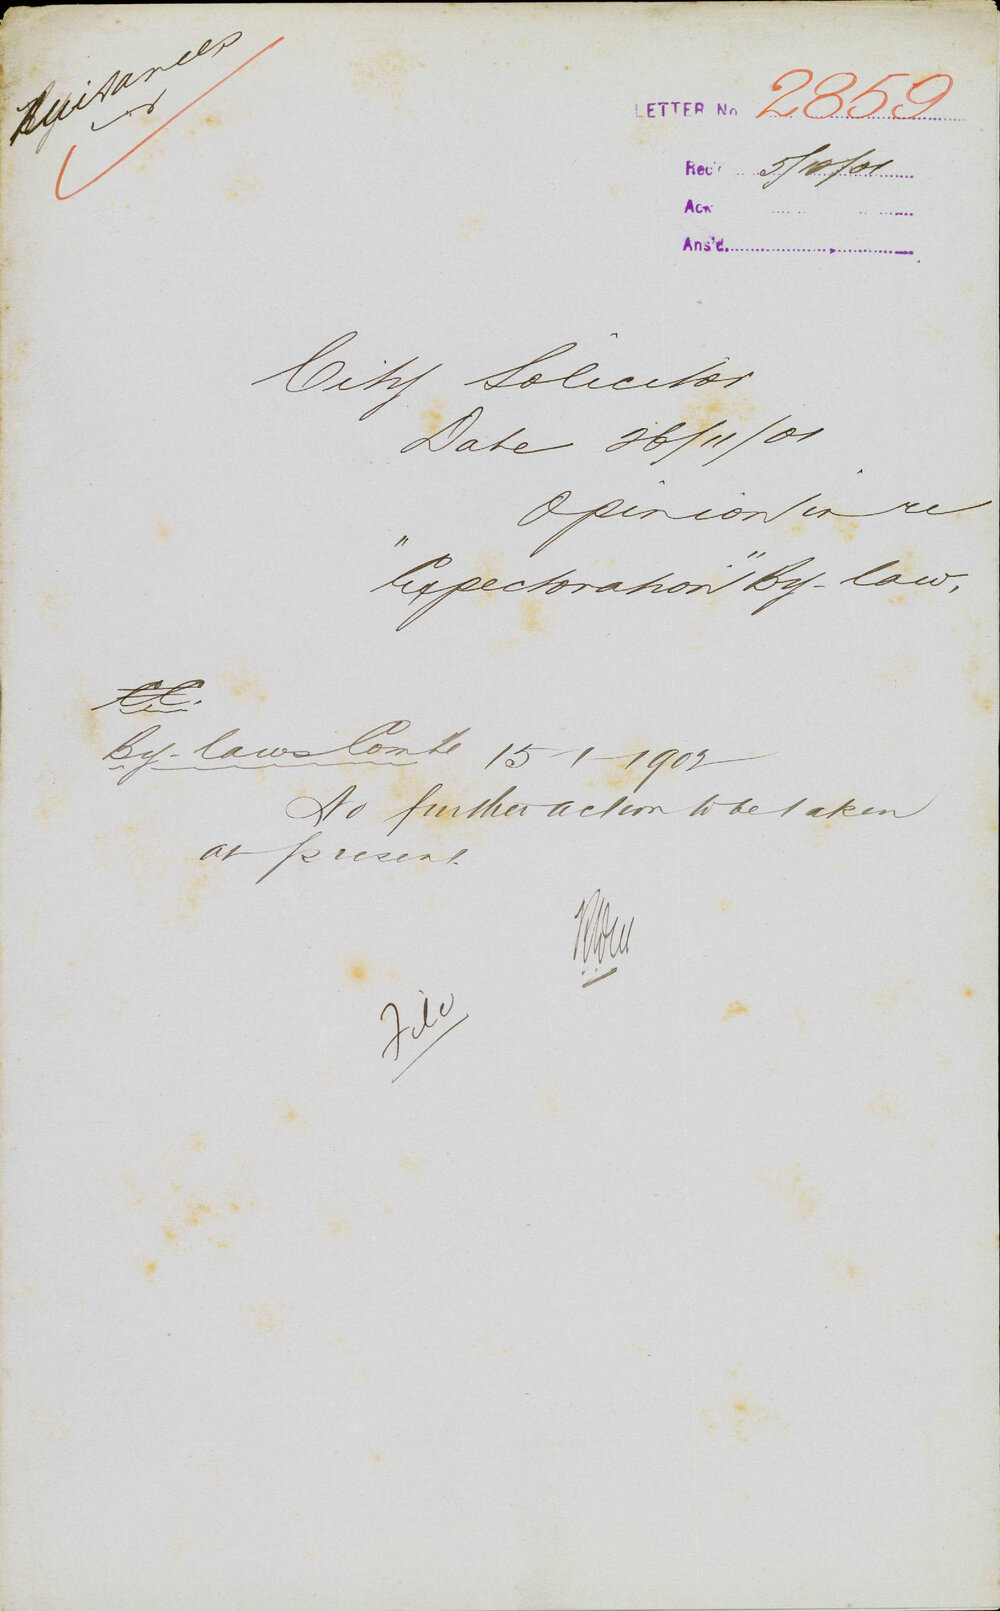 Nuisances
LETTER No 2859
Rec'd 5/12/01
Ack
Ans'd.
City Solicitor
Date 26/11/01
Opinion in re
"Expectoration" By-law.
C.C.
By-laws Comte 15-1-1902
No further action to be taken
at present.
File